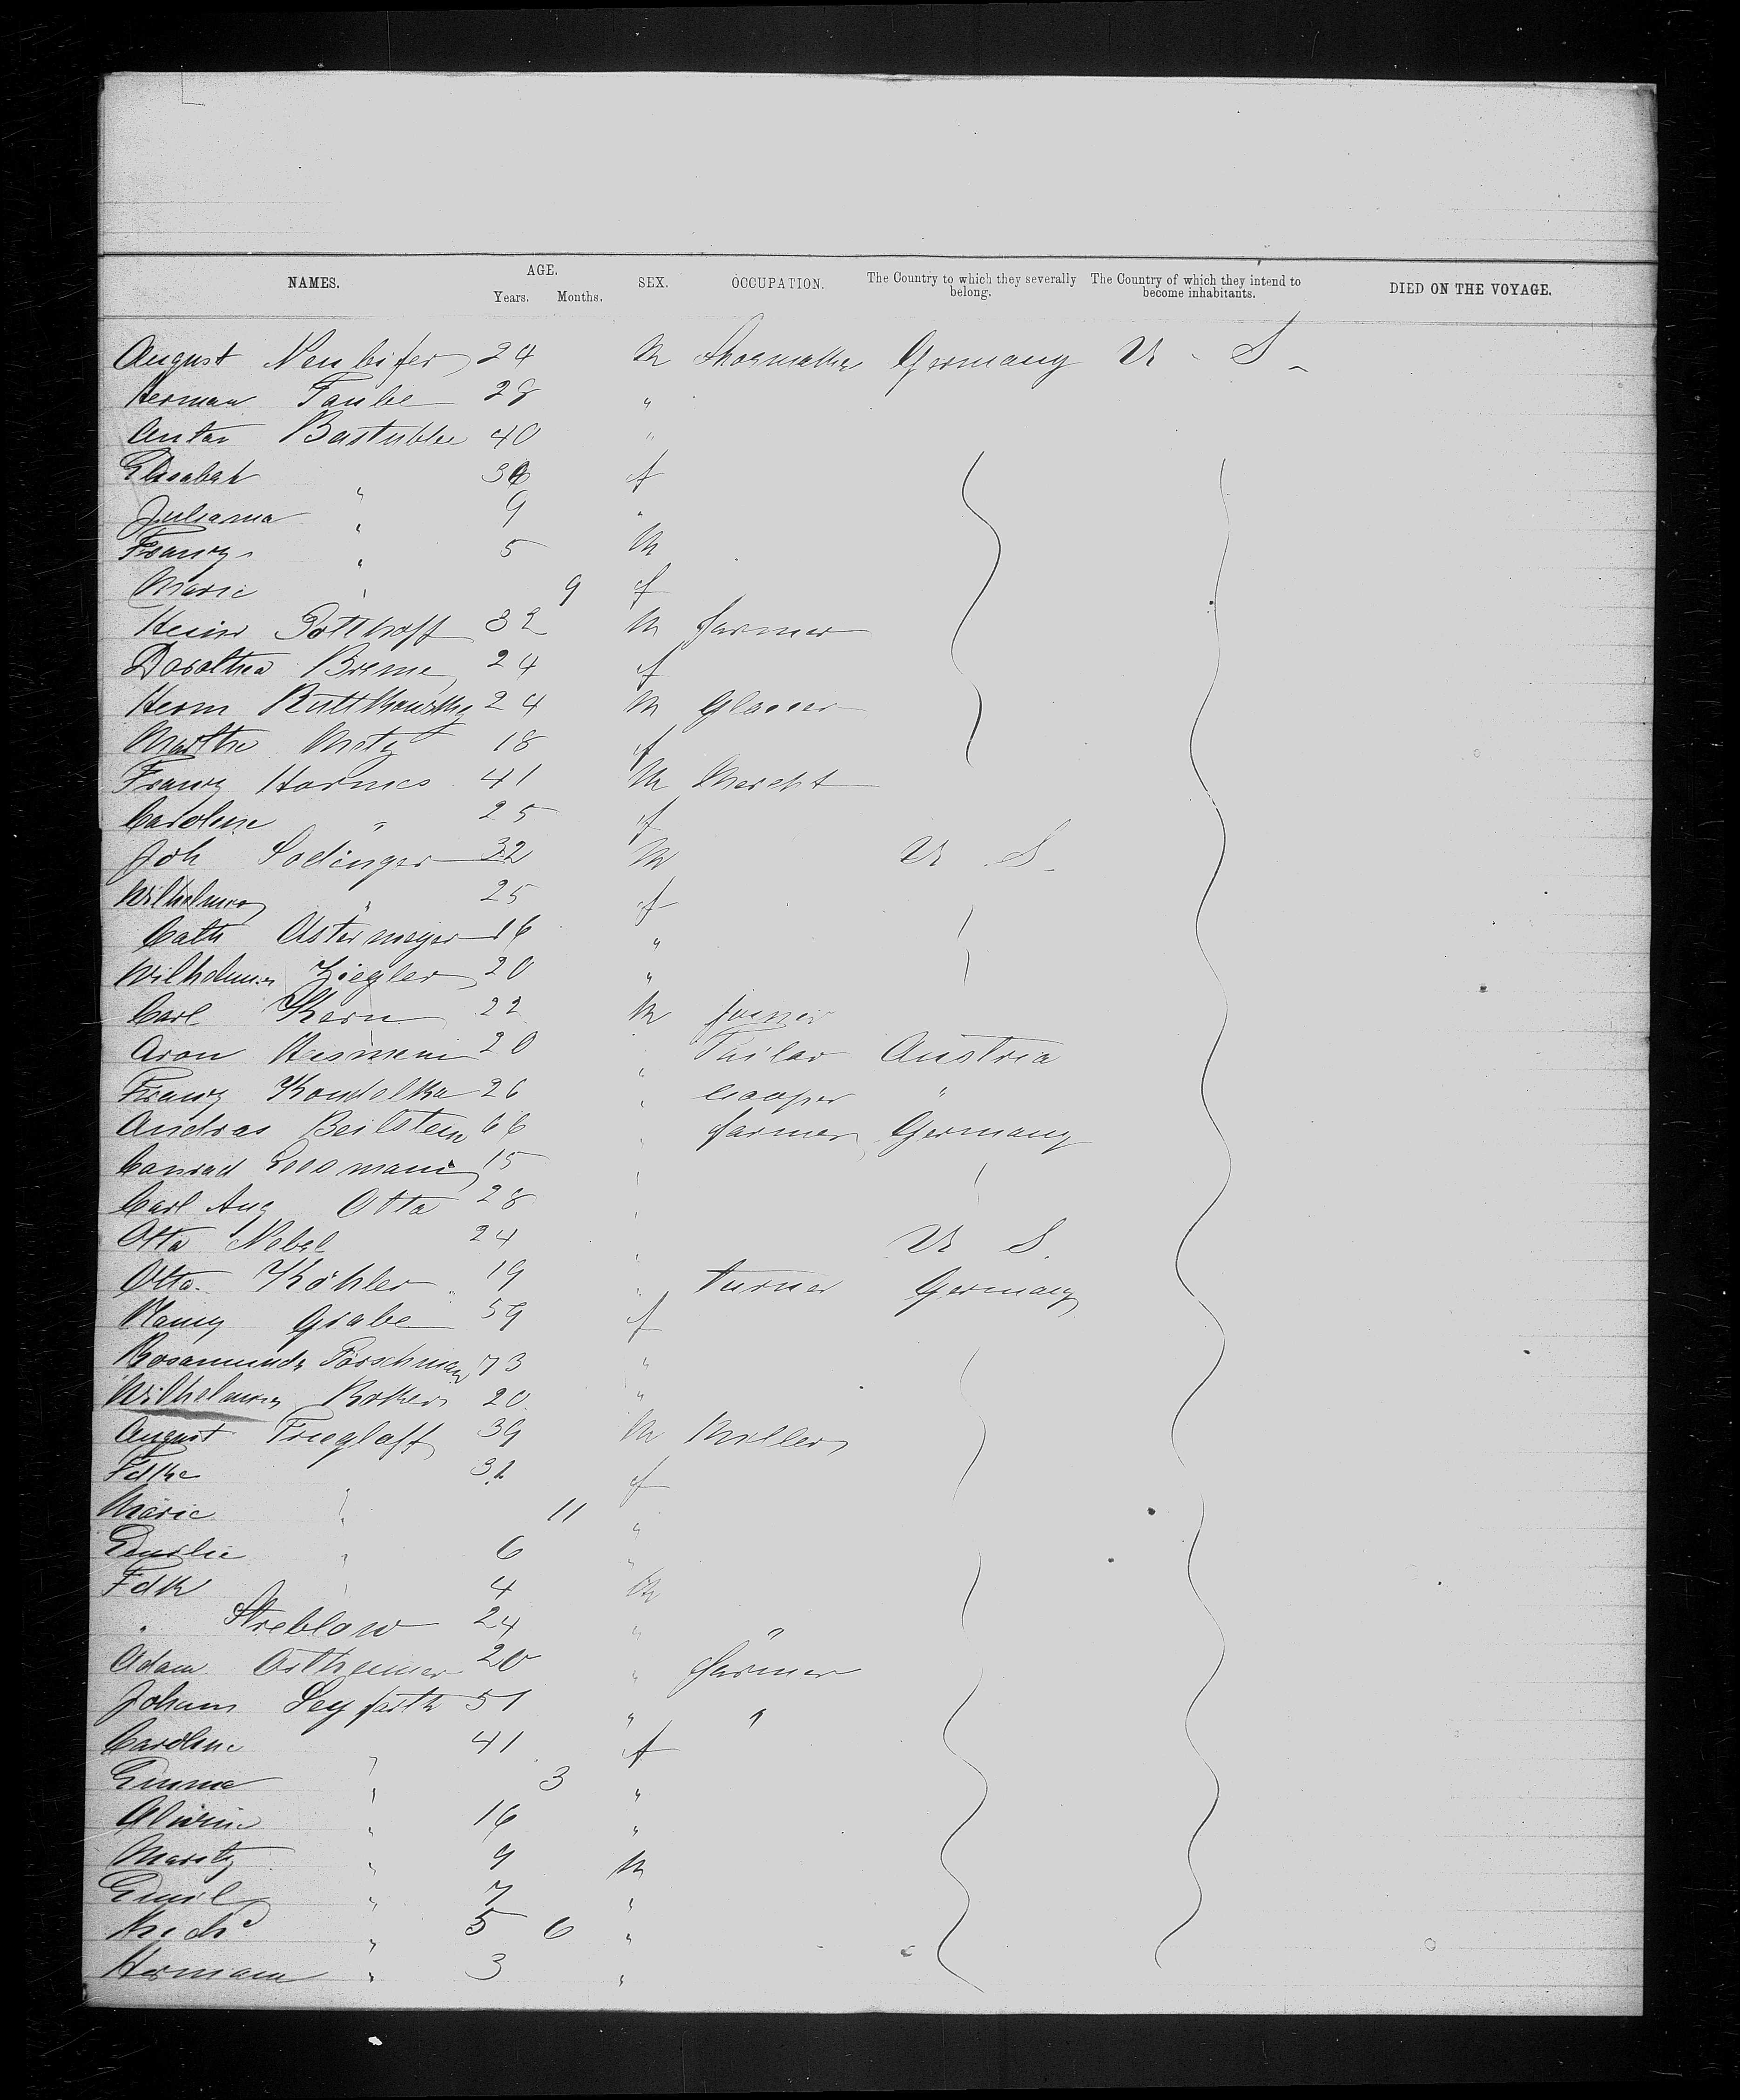 NAMES. AGE. Years. Months. SEX. OCCUPATION. The Country to which they severally belong. The Country of which they intend to become inhabitants. DIED ON THE VOYAGE.
August Neubifer 24 M Shoemaker Germany U. S.
Herman Taube 28 "
Anton Bastubbe 40 "
Elisabeh " 30 f
Juliama " 9 "
Franz " 5 M
Marie " 9 f
Heinr Potthoff 32 M farmer
Dorothea Breme 24 f
Herm Ruttkowsky 24 M Glaser
Marthe Metz 18 f
Franz Harmes 41 M Mercht
Caroline " 25 f
Joh Sodinger 32 M U. S.
Wilhelmine " 25 f
Cath Astermeyer 16 "
Wilhelmin Ziegler 20 "
Carl Kern 22 M joiner
Aron 20 " Tailor Austria
Franz Koudelka 26 " cooper "
Andras Beilstein 66 " farmer Germany
Conrad Loosmann 15 "
Carl Aug Otto 28 "
Otto Nebel 24 " U S.
Otto Köhler 19 " turner Germany
Nanny Grabe 59 f
Rosamunde Porschman 73 "
Wilhelmine 20 "
August Trieglaff 39 M Miller
Fdke 31 f
Marie " 11 "
Emilie " 6 "
Fdk " 4 M
" Streblow 24 " "
Adam Ostheimer 20 " farmer
Johann Seyfarth 51 " "
Caroline " 41 f
Emma " 3 "
Alwine " 16 "
Moritz " 9 M
Emil " 7 "
" 5 6 "
Hermann " 3 "